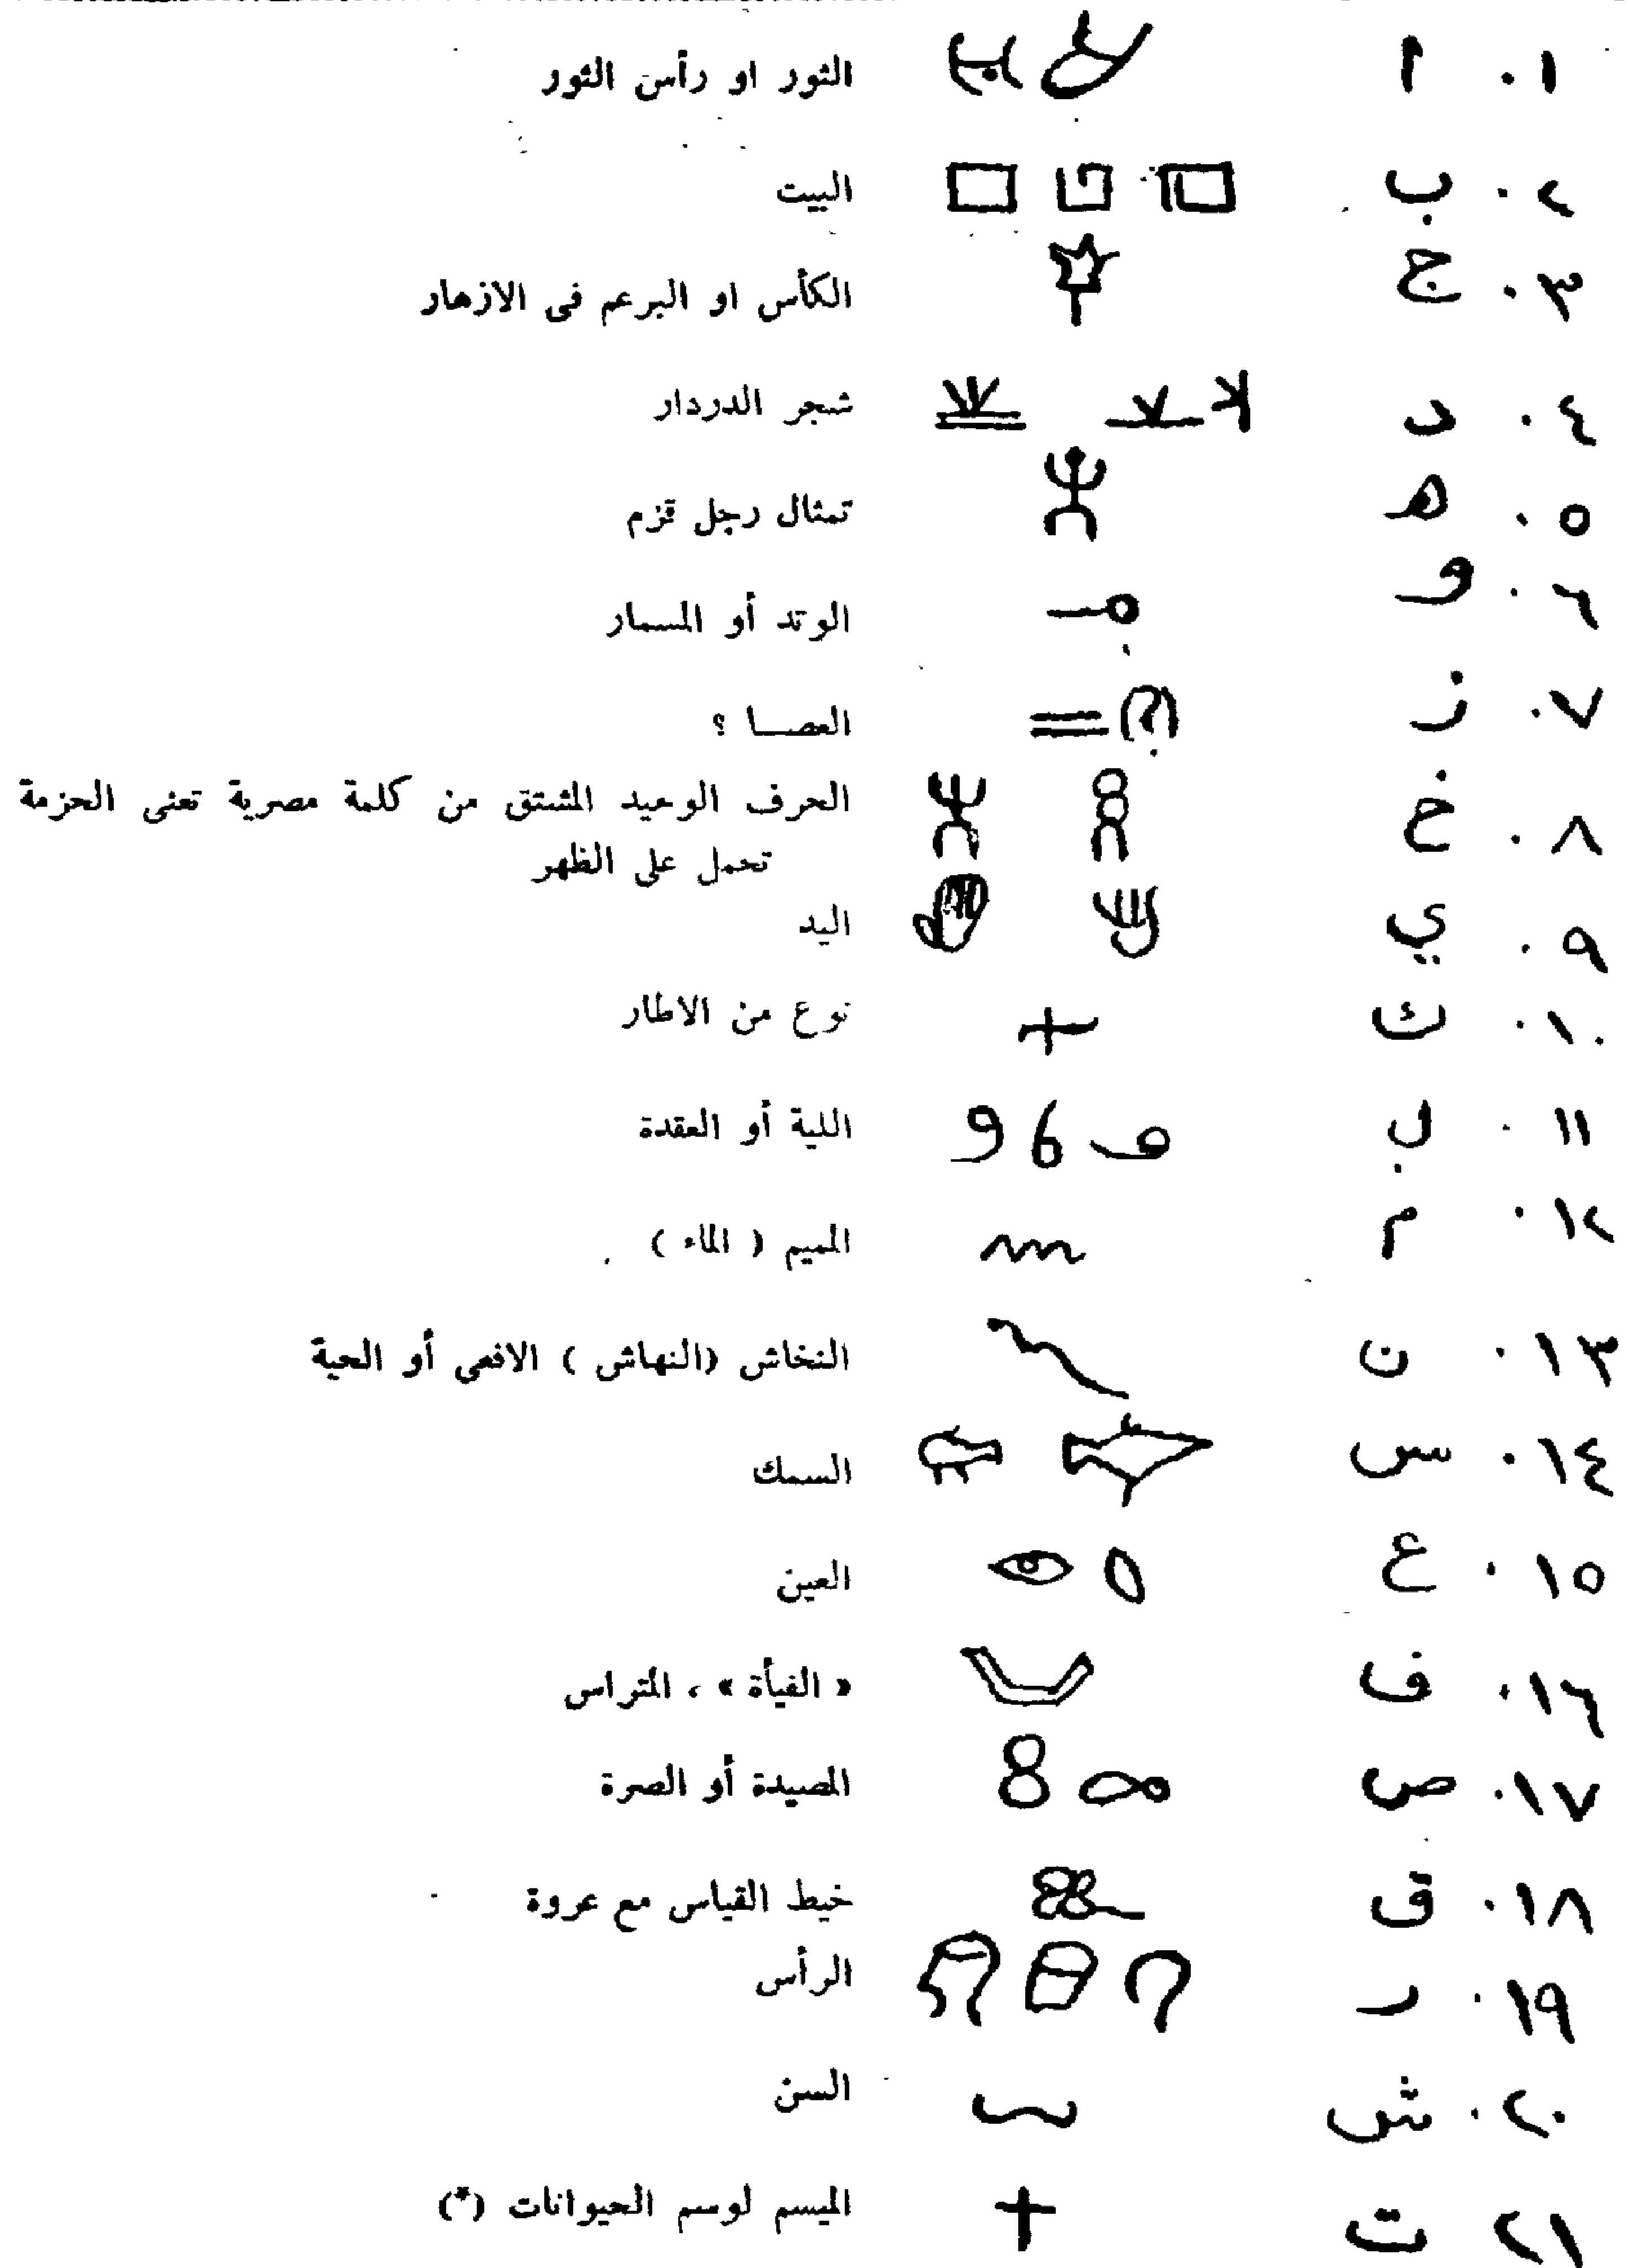 ١. ا الثور او رأس الثور
٢. ب البيت
٣. ج الكأس او البرعم فى الازهار
٤. د شجر الدردار
٥. هـ تمثال رجل قزم
٦. و الوتد أو المسمار
٧. ز (؟) = العصا ؟
٨. خ الحرف الوحيد المشتق من كلمة مصرية تعنى الحزمة
تحمل على الظهر
٩. ي اليد
١٠. ك نوع من الاطار
١١. ل اللية أو العقدة
١٢. م الميم ( الماء )
١٣. ن النخاش (النهاش ) الافعى أو الحية
١٤. س السمك
١٥. ع العين
١٦. ف « الفيأة » ، المتراس
١٧. ص المصيدة أو الصرة
١٨. ق خيط القياس مع عروة
١٩. ر الرأس
٢٠. ش السن
٢١ ت الميسم لوسم الحيوانات (*)